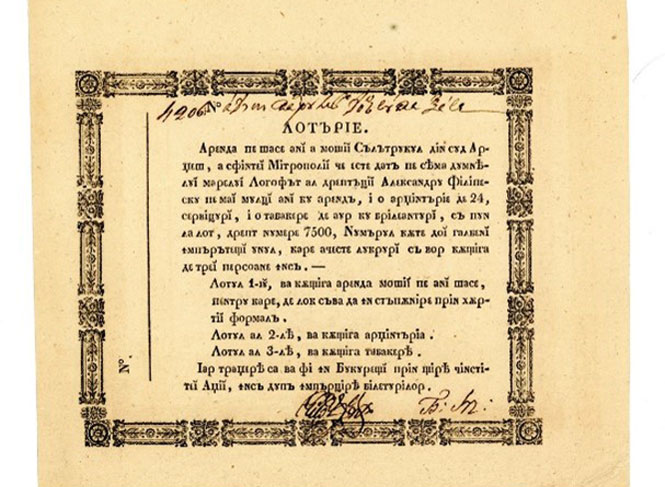 4206 №
ЛОТЪРІЕ.
Аренда пе шасе анĭ а мошіĭ Сълътрукул дін суд Ар-
џеш, а сфінтеĭ Мітрополіĭ че есте датъ пе сѣма думнѣ-
луĭ марелуĭ Логофът ал дрептъціĭ Александру Філіпе-
ску пе маĭ мулцĭ анĭ ку арендъ, і о арџінтъріе де 24,
сервіцурĭ, і о табакере де аур ку бріліантурĭ, съ пун
ла лот, дрепт нумере 7500, Нумърул кѫте доĭ галбенĭ
ꙟмпърътещĭ унул, каре ачесте лукрурĭ съ вор кѫщіга
де треĭ персоане ꙟнсъ. —
Лотул 1-ій, ва кѫщіга аренда мошіĭ пе анĭ шасе,
пентру каре, де лок съва да ꙟн стъпѫніре прін хѫр-
тіĭ формалъ.
Лотул ал 2-лѣ, ва кѫщіга арџінтъріа.
Лотул ал 3-лѣ, ва кѫщіга табакерѣ.
Іар траџере са ва фі ꙟн Букурещĭ прін щіре чінсті-
тіĭ Аџіĭ, ꙟнсъ дупъ ꙟмпърціре білетурілор.
№.